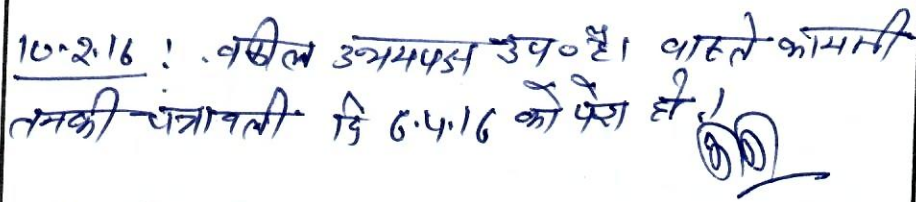 10.2.16 : वकील उभयपक्ष उप० है। वास्ते कार्यवाही
तलबी पत्रावली दि 6.4.16 को पेश हो।